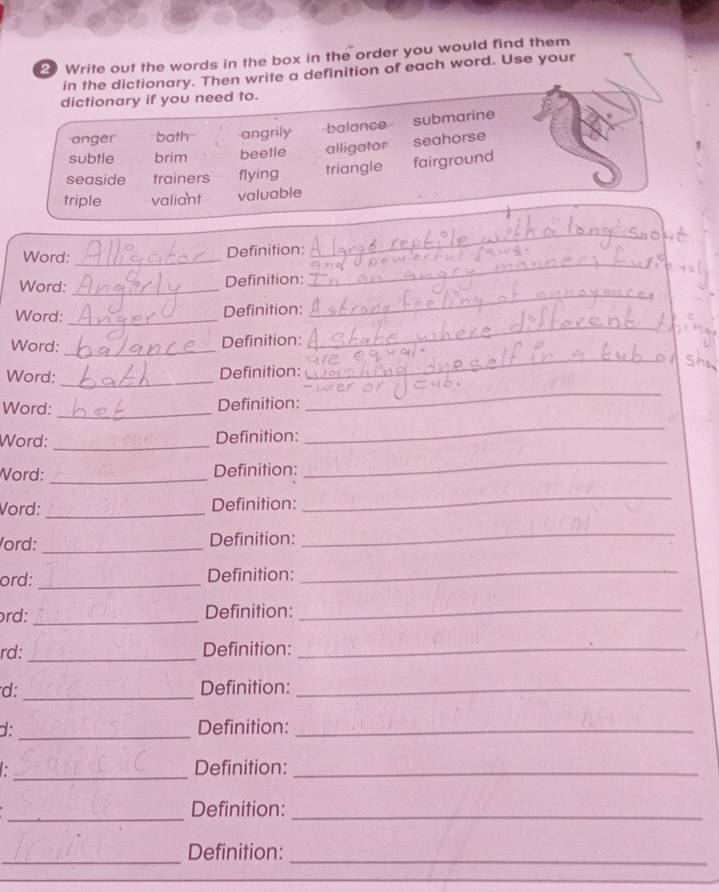 2 Write out the words in the box in the order you would find them
in the dictionary. Then write a definition of each word. Use your
dictionary if you need to.
anger bath angrily balance submarine
subtle brim beetle alligator seahorse
seaside trainers flying triangle fairground
triple valiant valuable
Word: Alligator Definition: A large reptile with a long snout
and powerful jaws.
Word: Angirly Definition: In an angry manner; furiously
Word: Anger Definition: A strong feeling of annoyance
Word: balance Definition: A state where different things
are equal.
Word: bath Definition: washing oneself in a tub or sho
-wer or tub.
Word: bet Definition:
Word: Definition:
Word: Definition:
Vord: Definition:
ord: Definition:
ord: Definition:
ord: Definition:
rd: Definition:
d: Definition:
d: Definition:
: Definition:
Definition:
Trainers Definition: